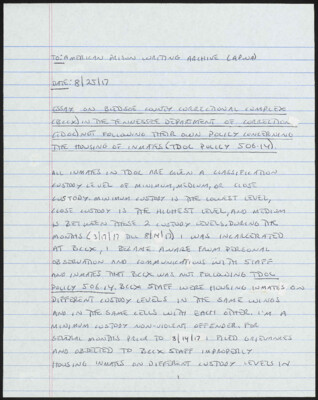 TO: AMERICAN PRISON WRITING ARCHIVE (APWA)
DATE: 8/25/17
ESSAY ON BLEDSOE COUNTY CORRECTIONAL COMPLEX
(BCCX) IN THE TENNESSEE DEPARTMENT OF CORRECTION
(TDOC) NOT FOLLOWING THEIR OWN POLICY CONCERNING
THE HOUSING OF INMATES (TDOC POLICY 506.14).
ALL INMATES IN TDOC ARE GIVEN A CLASSIFICATION
CUSTODY LEVEL OF MINIMUM, MEDIUM, OR CLOSE
CUSTODY. MINIMUM CUSTODY IS THE LOWEST LEVEL,
CLOSE CUSTODY IS THE HIGHEST LEVEL, AND MEDIUM
IS BETWEEN THOSE 2 CUSTODY LEVELS. DURING THE
MONTHS (3/7/17 THRU 8/14/17) I WAS INCARCERATED
AT BCCX, I BECAME AWARE FROM PERSONAL
OBSERVATION AND COMMUNICATIONS WITH STAFF
AND INMATES THAT BCCX WAS NOT FOLLOWING TDOC
POLICY 506.14. BCCX STAFF WERE HOUSING INMATES ON
DIFFERENT CUSTODY LEVELS IN THE SAME WINGS
AND IN THE SAME CELLS WITH EACH OTHER. I'M A
MINIMUM CUSTODY NON-VIOLENT OFFENDER. FOR
SEVERAL MONTHS PRIOR TO 8/14/17 I FILED GRIEVANCES
AND OBJECTED TO BCCX STAFF IMPROPERLY
HOUSING INMATES ON DIFFERENT CUSTODY LEVELS IN
1